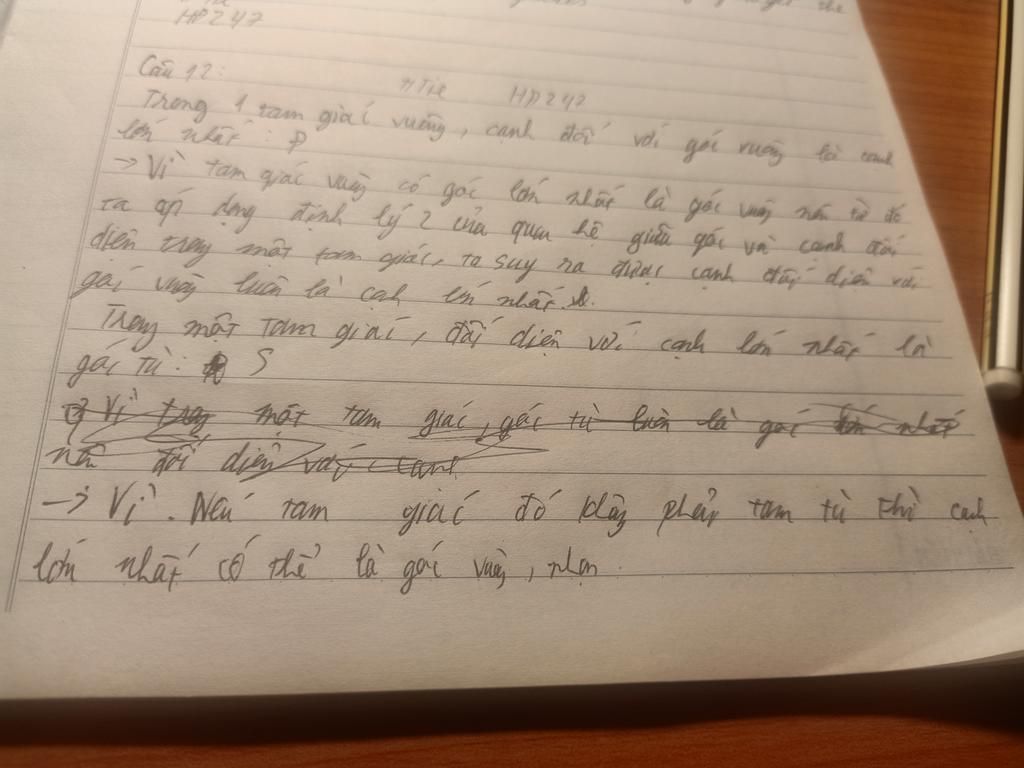 HP247
Câu 12:
HP247
Trong 1 tam giác vuông, cạnh đối với góc vuông là cạnh
lớn nhất: Đ
→ Vì tam giác vuông có góc lớn nhất là góc vuông nên từ đó
ta áp dụng định lý 2 của quan hệ giữa góc và cạnh đối
diện trong một tam giác, ta suy ra được cạnh đối diện với
góc vuông luôn là cạnh lớn nhất.
Trong một tam giác, đối diện với cạnh lớn nhất là
góc tù: S
Vì trong một tam giác, góc tù luôn là góc lớn nhất
nên đối diện với cạnh
→ Vì. Nếu tam giác đó không phải tam tù thì cạnh
lớn nhất có thể là góc vuông, nhọn.